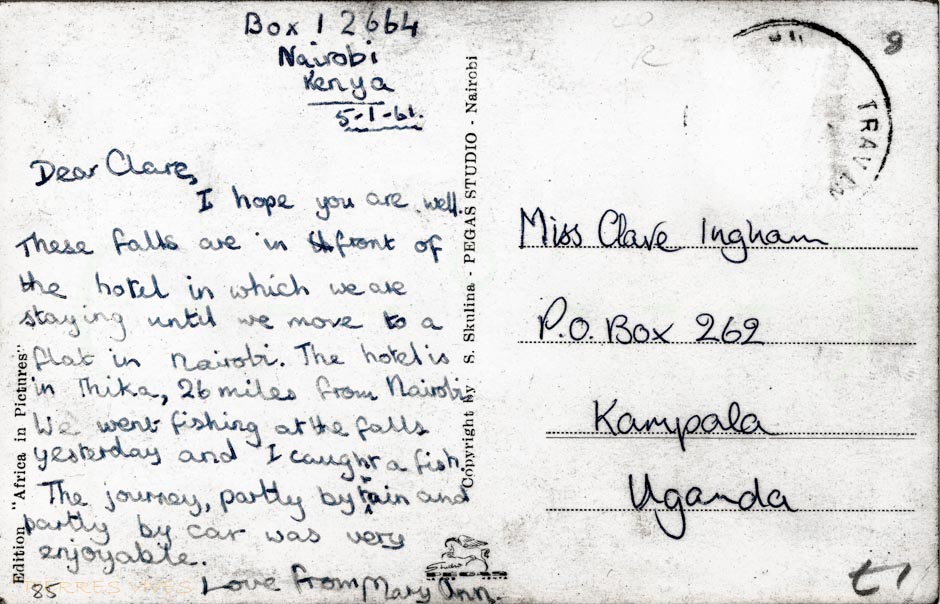 Box 12664
Nairobi
Kenya
5-1-61.
Dear Clare,
I hope you are well.
These falls are in front of
the hotel in which we are
staying until we move to a
flat in Nairobi. The hotel is
in Thika, 26 miles from Nairobi.
We went fishing at the falls
yesterday and I caught a fish.
The journey, partly by train and
partly by car was very
enjoyable.
Love from Mary Ann.
Edition "Africa in Pictures"
85
Copyright by S. Skulina - PEGAS STUDIO - Nairobi
9
TRAV
Miss Clare Ingham
P.O. Box 262
Kampala
Uganda